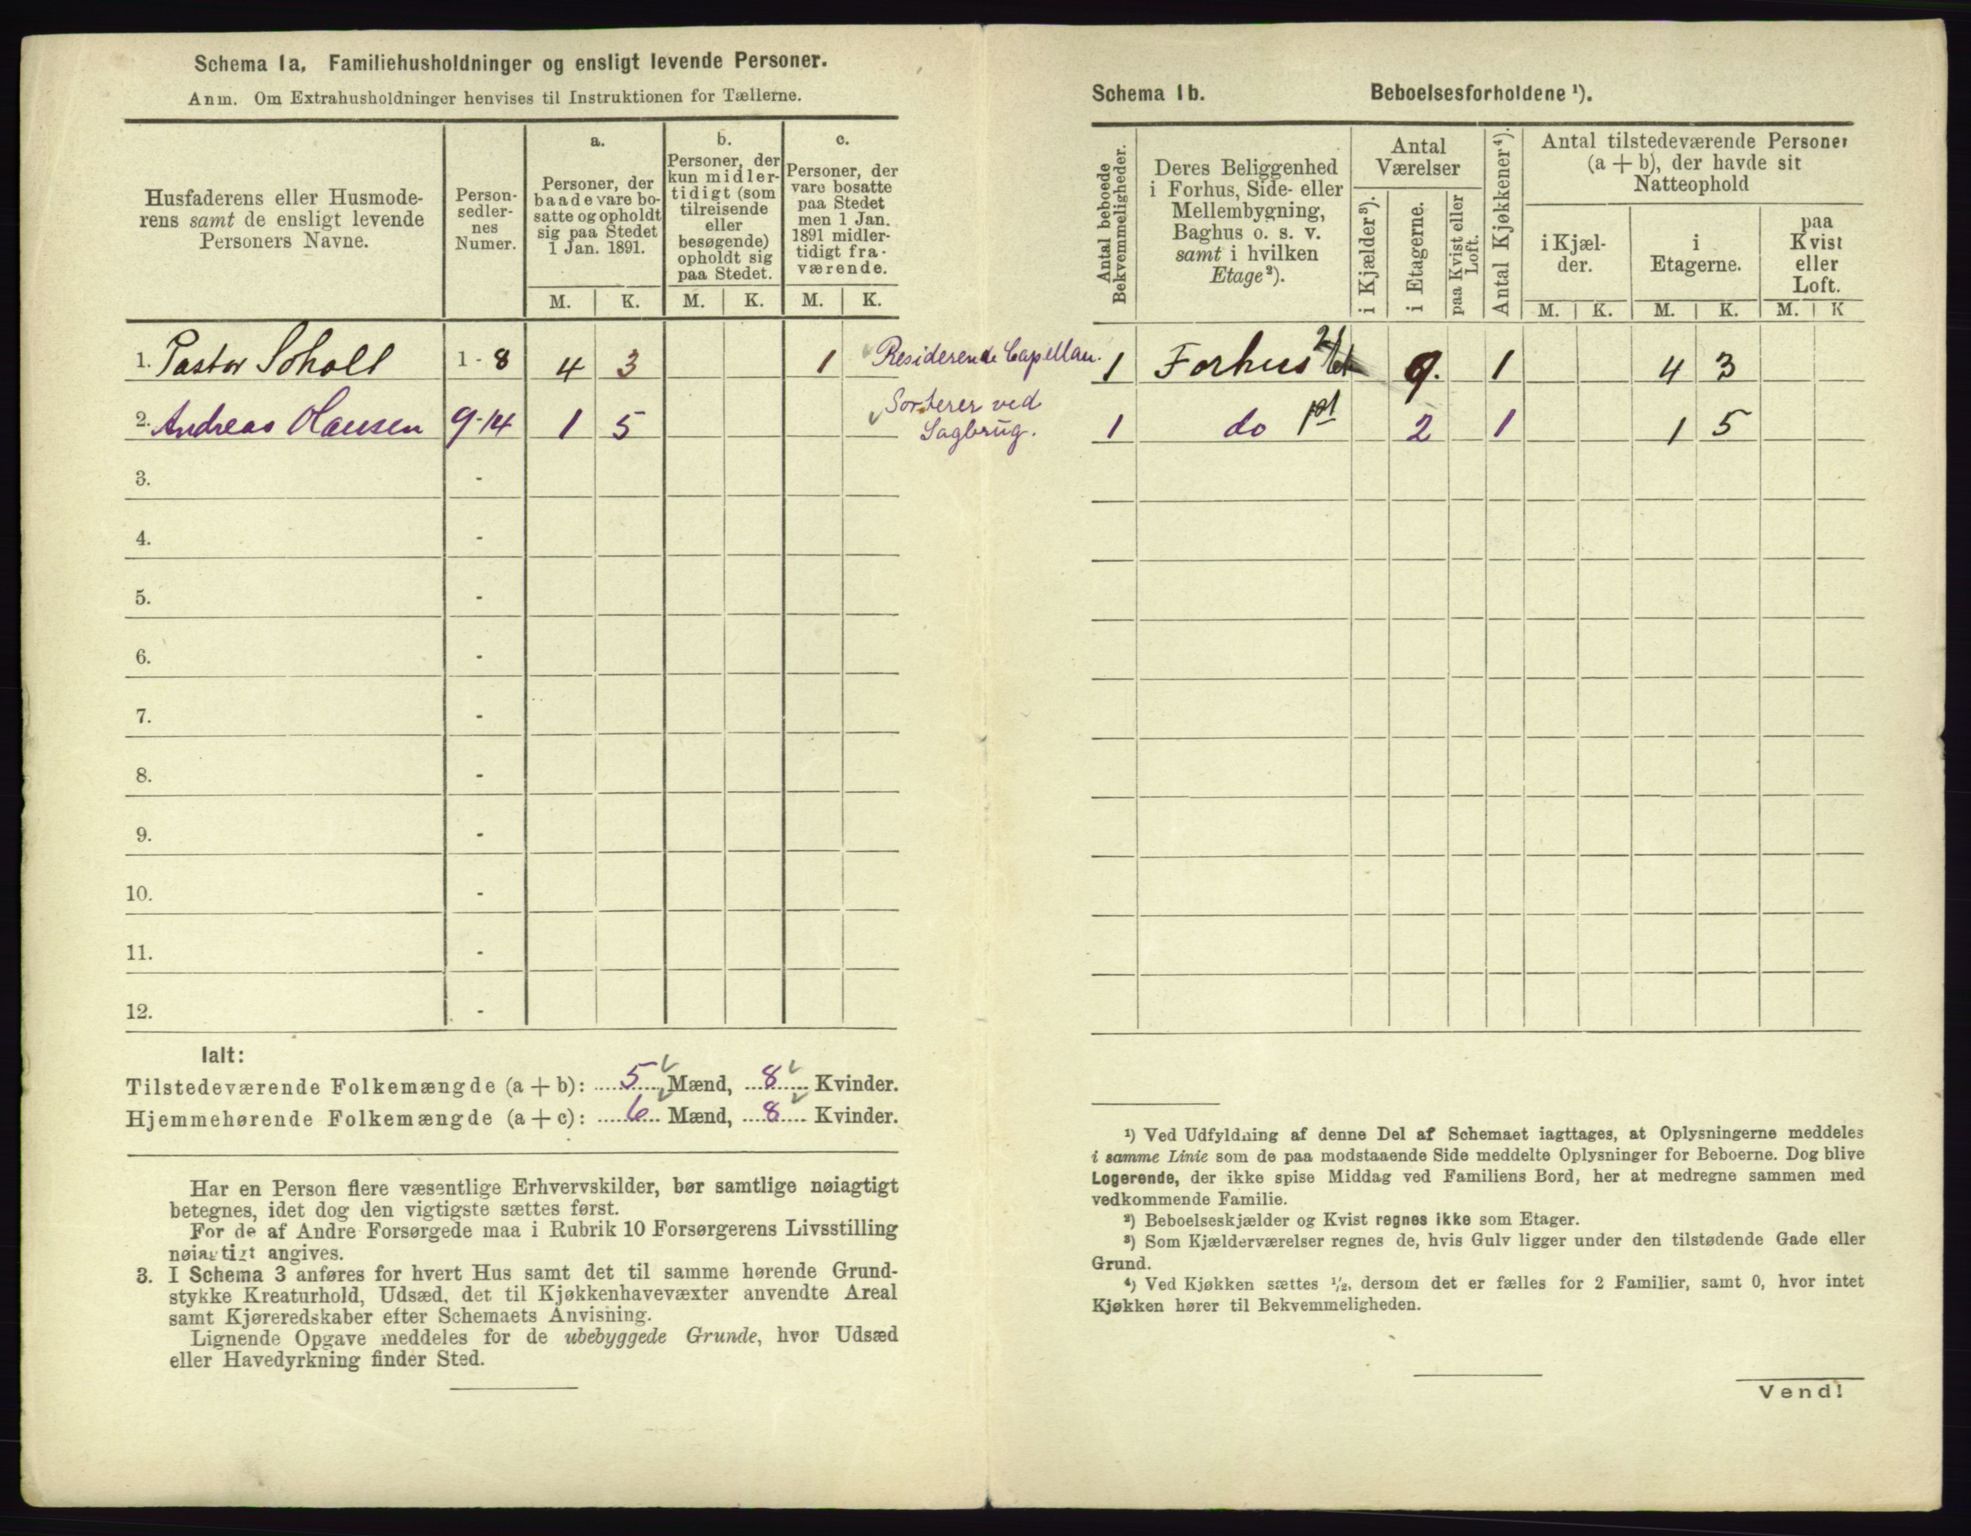 Schema 1a, Familiehusholdninger og ensligt levende Personer.
Anm. Om Extrahusholdninger henvises til Instruktionen for Tællerne.
Husfaderens eller Husmode-
rens samt de ensligt levende
Personers Navne.
Person-
sedler-
nes
Numer.
a.
Personer, der
baade vare bo-
satte og opholdt
sig paa Stedet
1 Jan. 1891.
b.
Personer, der
kun midler-
tidigt (som
tilreisende
eller
besøgende)
opholdt sig
paa Stedet.
c.
Personer, der
vare bosatte
paa Stedet
men 1 Jan.
1891 midler-
tidigt fra-
værende.
M. K. M. K. M. K.
1. Pastor Scholl 1 - 8 4 3 1 Residerende Capellan.
2. Andreas Hansen 9-14 1 5 Sorterer ved
Sagbrug.
3. -
4. -
5. -
6. -
7. -
8. -
9. -
10. -
11. -
12. -
Ialt:
Tilstedeværende Folkemængde (a + b): 5 Mænd, 8 Kvinder.
Hjemmehørende Folkemængde (a + c): 6 Mænd, 8 Kvinder.
Har en Person flere væsentlige Erhvervskilder, bør samtlige nøiagtigt
betegnes, idet dog den vigtigste sættes først.
For de af Andre Forsørgede maa i Rubrik 10 Forsørgerens Livsstilling
nøiagtigt angives.
3. I Schema 3 anføres for hvert Hus samt det til samme hørende Grund-
stykke Kreaturhold, Udsæd, det til Kjøkkenhavevæxter anvendte Areal
samt Kjøreredskaber efter Schemaets Anvisning.
Lignende Opgave meddeles for de ubebyggede Grunde, hvor Udsæd
eller Havedyrkning finder Sted.
Schema 1b. Beboelsesforholdene ¹).
Antal beboede
Bekvemmeligheder.
Deres Beliggenhed
i Forhus, Side- eller
Mellembygning,
Baghus o. s. v.
samt i hvilken
Etage²).
Antal
Værelser
i Kjælder³).
i Etagerne.
paa Kvist eller
Loft.
Antal Kjøkkener⁴).
Antal tilstedeværende Personer
(a + b), der havde sit
Natteophold
i Kjæl-
der.
i
Etagerne.
paa
Kvist
eller
Loft.
M. K. M. K. M. K
1 Forhus 2 Et 9. 1 4 3
1 do 1st 2 1 1 5
¹) Ved Udfyldning af denne Del af Schemaet iagttages, at Oplysningerne meddeles
i samme Linie som de paa modstaaende Side meddelte Oplysninger for Beboerne. Dog blive
Logerende, der ikke spise Middag ved Familiens Bord, her at medregne sammen med
vedkommende Familie.
²) Beboelseskjælder og Kvist regnes ikke som Etager.
³) Som Kjælderværelser regnes de, hvis Gulv ligger under den tilstødende Gade eller
Grund.
⁴) Ved Kjøkken sættes ¹/₂, dersom det er fælles for 2 Familier, samt 0, hvor intet
Kjøkken hører til Bekvemmeligheden.
Vend!